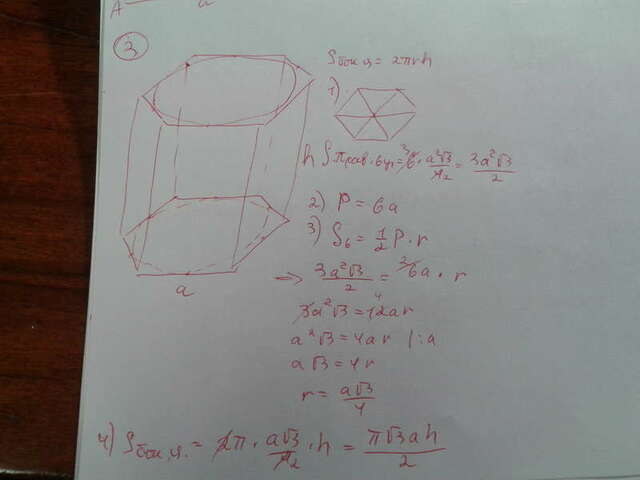 A a
3
Sбок.ц. = 2πrh
1)
h Sправ.6уг. = ³6 · a²√3/4₂ = 3a²√3/2
2) P = 6a
3) S₆ = 1/2 P · r
a
=> 3a²√3/2 = ³6a · r
3a²√3 = 12⁴ar
a²√3 = 4ar |:a
a√3 = 4r
r = a√3/4
4) Sбок.ц. = 2π · a√3/4₂ · h = π√3ah/2